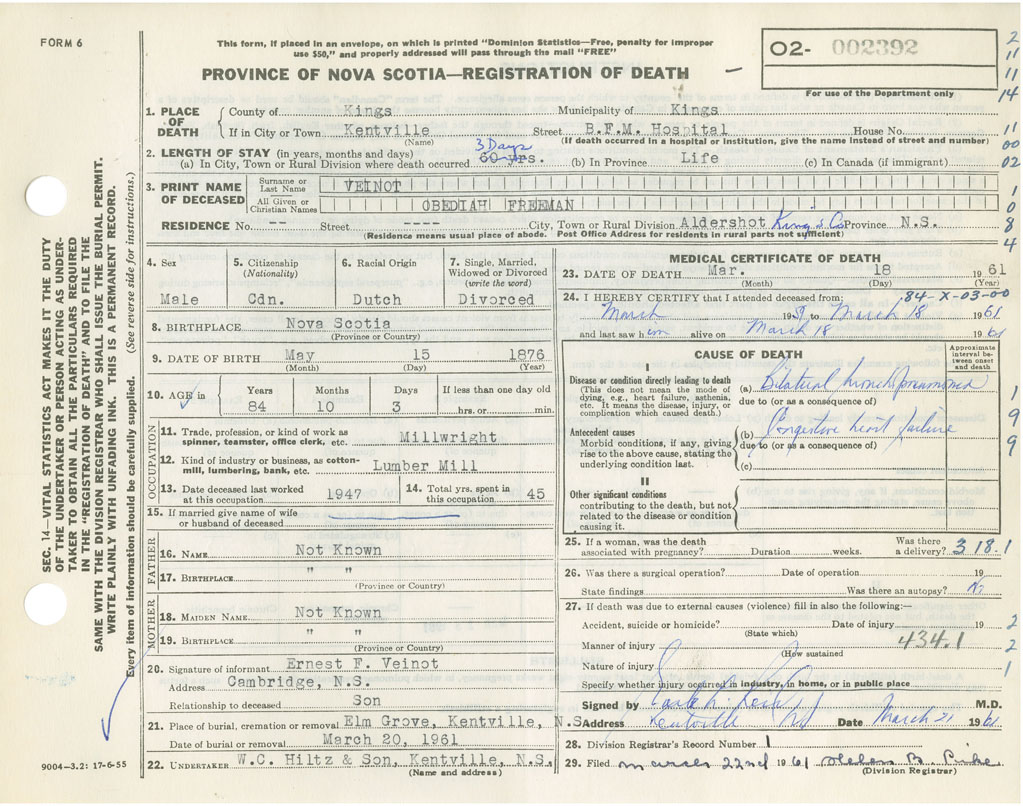 FORM 6
This form, if placed in an envelope, on which is printed "Dominion Statistics—Free, penalty for improper
use $50," and properly addressed will pass through the mail "FREE"
PROVINCE OF NOVA SCOTIA—REGISTRATION OF DEATH
02- 002392
For use of the Department only
2
11
11
14
11
00
02
1
0
8
4
1. PLACE OF DEATH
County of Kings Municipality of Kings
If in City or Town Kentville Street B.F.M. Hospital House No.
(Name) (If death occurred in a hospital or institution, give the name instead of street and number)
2. LENGTH OF STAY (in years, months and days) 3 Days
(a) In City, Town or Rural Division where death occurred 60 yrs. (b) In Province Life (c) In Canada (if immigrant)
3. PRINT NAME OF DECEASED
Surname or Last Name VEINOT
All Given or Christian Names OBEDIAH FREEMAN
RESIDENCE No. -- Street ---- City, Town or Rural Division Aldershot Kings Co Province N.S.
(Residence means usual place of abode. Post Office Address for residents in rural parts not sufficient)
SEC. 14—VITAL STATISTICS ACT MAKES IT THE DUTY
OF THE UNDERTAKER OR PERSON ACTING AS UNDER-
TAKER TO OBTAIN ALL THE PARTICULARS REQUIRED
IN THE "REGISTRATION OF DEATH" AND TO FILE THE
SAME WITH THE DIVISION REGISTRAR WHO SHALL ISSUE THE BURIAL PERMIT.
WRITE PLAINLY WITH UNFADING INK. THIS IS A PERMANENT RECORD.
Every item of information should be carefully supplied. (See reverse side for instructions.)
4. Sex
Male
5. Citizenship
(Nationality)
Cdn.
6. Racial Origin
Dutch
7. Single, Married,
Widowed or Divorced
(write the word)
Divorced
8. BIRTHPLACE Nova Scotia
(Province or Country)
9. DATE OF BIRTH May 15 1876
(Month) (Day) (Year)
10. AGE in
Years 84
Months 10
Days 3
If less than one day old
hrs. or min.
OCCUPATION
11. Trade, profession, or kind of work as
spinner, teamster, office clerk, etc. Millwright
12. Kind of industry or business, as cotton-
mill, lumbering, bank, etc. Lumber Mill
13. Date deceased last worked
at this occupation 1947
14. Total yrs. spent in
this occupation 45
15. If married give name of wife
or husband of deceased
FATHER
16. NAME Not Known
17. BIRTHPLACE " "
(Province or Country)
MOTHER
18. MAIDEN NAME Not Known
19. BIRTHPLACE " "
(Province or Country)
20. Signature of informant Ernest F. Veinot
Address Cambridge, N.S.
Relationship to deceased Son
21. Place of burial, cremation or removal Elm Grove, Kentville, N.S.
Date of burial or removal March 20, 1961
22. UNDERTAKER W.C. Hiltz & Son, Kentville, N.S.
(Name and address)
9004—3.2: 17-6-55
MEDICAL CERTIFICATE OF DEATH
23. DATE OF DEATH Mar. 18 1961
(Month) (Day) (Year)
84-X-03-00
24. I HEREBY CERTIFY that I attended deceased from:
March 19 to March 18 1961
and last saw him alive on March 18 1961
CAUSE OF DEATH
Approximate interval between onset and death
I
Disease or condition directly leading to death
(This does not mean the mode of
dying, e.g., heart failure, asthenia,
etc. It means the disease, injury, or
complication which caused death.)
(a) Bilateral bronchopneumonia
due to (or as a consequence of)
Antecedent causes
Morbid conditions, if any, giving
rise to the above cause, stating the
underlying condition last.
(b) Congestive heart failure
due to (or as a consequence of)
(c)
II
Other significant conditions
contributing to the death, but not
related to the disease or condition
causing it.
1
9
9
25. If a woman, was the death
associated with pregnancy? Duration weeks. Was there
a delivery? 318.1
26. Was there a surgical operation? Date of operation 19
State findings Was there an autopsy? No
27. If death was due to external causes (violence) fill in also the following:—
Accident, suicide or homicide? Date of injury 19
(State which)
Manner of injury 434.1
(How sustained
Nature of injury
Specify whether injury occurred in industry, in home, or in public place
2
2
1
Signed by M.D.
Address Kentville NS Date March 21 1961
28. Division Registrar's Record Number 1
29. Filed March 22nd 1961 Helen B.
(Division Registrar)